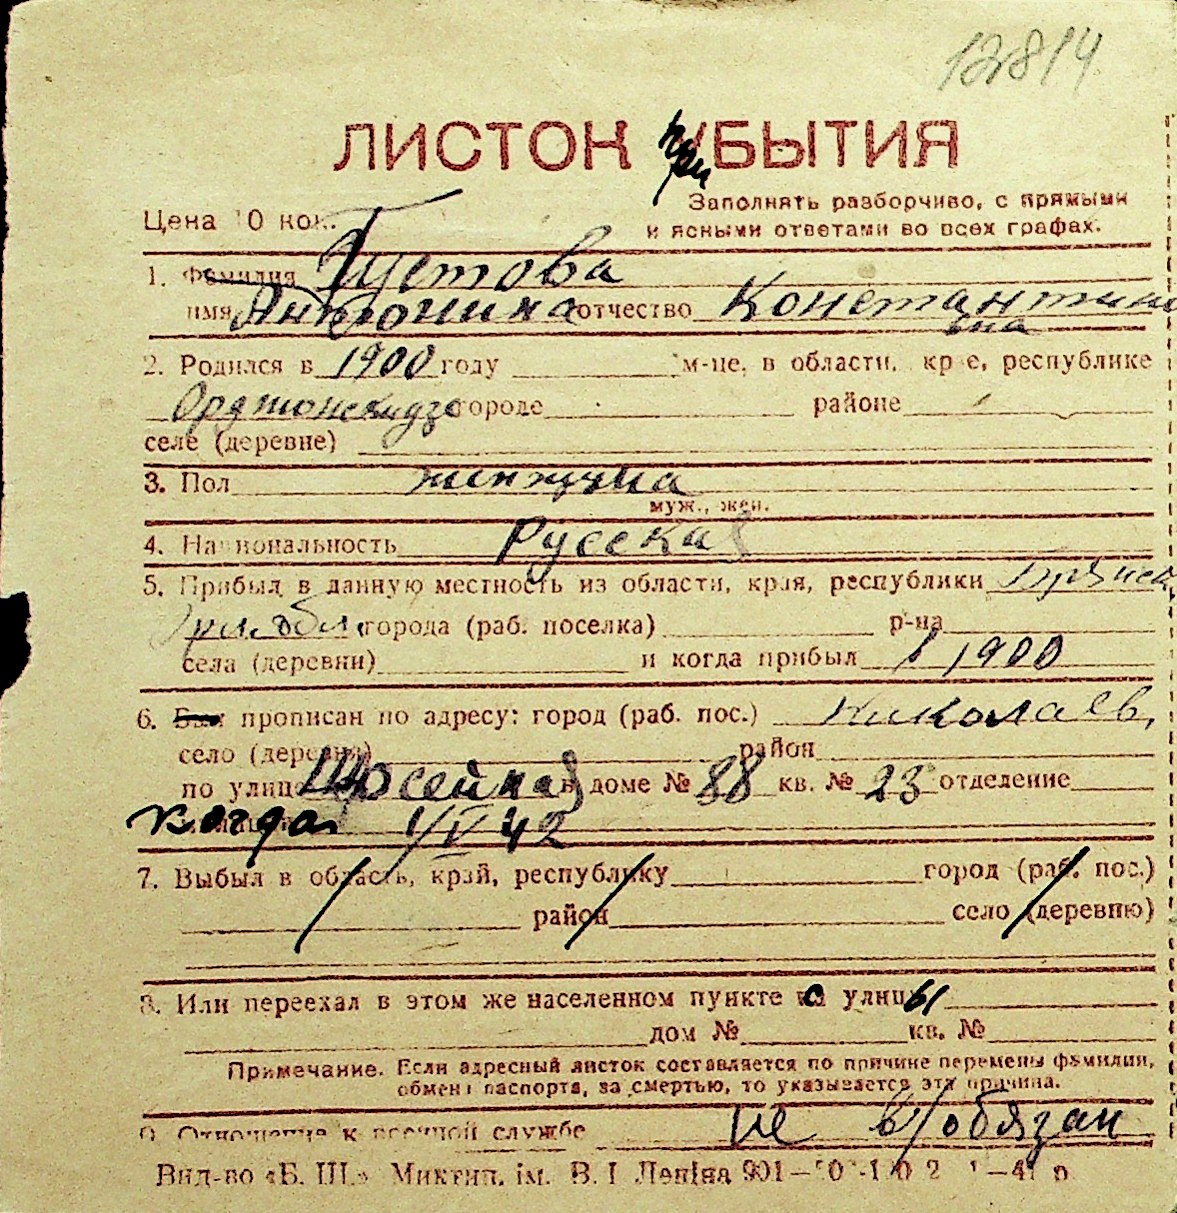 12814
ЛИСТОК прибытия
Цена 10 коп.
Заполнять разборчиво, с прямыми
и ясными ответами во всех графах.
1. Фамилия Густова
имя Антонина отчество Константин
овна
2. Родился в 1900 году м-це, в области, крае, республике
Орджоникидзе городе районе
селе (деревне)
3. Пол женщина
муж., жен.
4. Национальность Русская
5. Прибыл в данную местность из области, края, республики
города (раб. поселка) р-на
села (деревни) и когда прибыл в 1900
6. Был прописан по адресу: город (раб. пос.) Николаев,
село (деревня) район
по улице Шосейная в доме № 88 кв. № 23 отделение
когда 1/IV 42
7. Выбыл в область, край, республику город (раб. пос.)
район село (деревню)
8. Или переехал в этом же населенном пункте с улицы
дом № кв. №
Примечание. Если адресный листок составляется по причине перемены фамилии,
обмена паспорта, за смертью, то указывается эта причина.
9. Отношение к военной службе не в/обязан
Вид-во «Б. Ш.» Миктип. ім. В. І Леніна 901